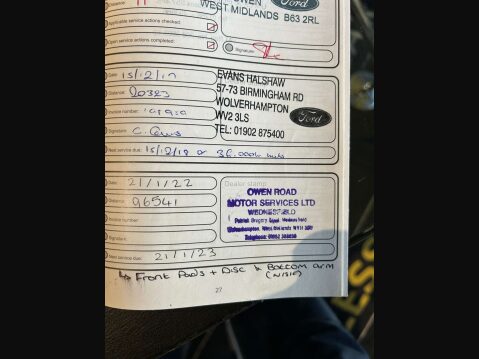 OWEN
WEST MIDLANDS B63 2RL
Ford
Applicable service actions checked:
Open service actions completed:
Signature:
Date: 15/12/17
Distance: 20383
Invoice number:
Signature:
Next service due: 15/12/18 or 36,000
EVANS HALSHAW
57-73 BIRMINGHAM RD
WOLVERHAMPTON
WV2 3LS
TEL: 01902 875400
Ford
Date: 21/1/22
Distance: 96541
Invoice number:
Signature:
Next service due: 21/1/23
Dealer stamp
OWEN ROAD
MOTOR SERVICES LTD
WEDNESFIELD
↳ Front Pads + Disc & Bottom arm
(N/S/F)
27